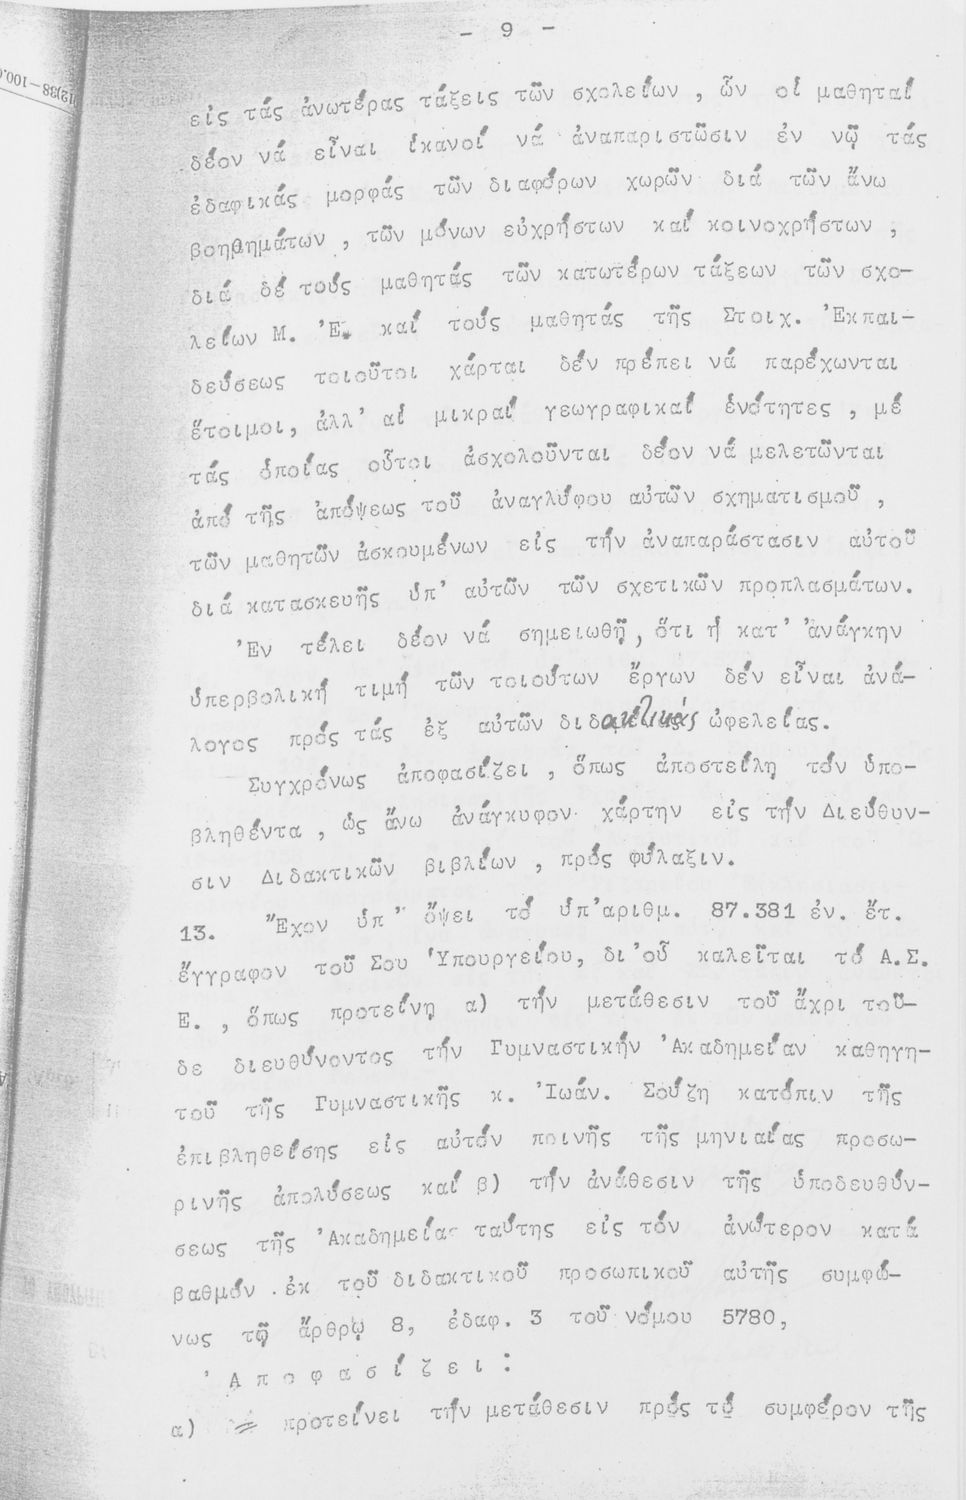 - 9 -
εἰς τάς ἀνωτέρας τάξεις τῶν σχολείων , ὧν οἱ μαθηταί
δέον νά εἶναι ἱκανοί νά ἀναπαριστῶσιν ἐν νῷ τάς
ἐδαφικάς μορφάς τῶν διαφόρων χωρῶν διά τῶν ἄνω
βοηθημάτων , τῶν μόνων εὐχρήστων καί κοινοχρήστων ,
διά δέ τούς μαθητάς τῶν κατωτέρων τάξεων τῶν σχο-
λείων Μ. Ἐ. καί τούς μαθητάς τῆς Στοιχ. Ἐκπαι-
δεύσεως τοιοῦτοι χάρται δέν πρέπει νά παρέχωνται
ἕτοιμοι, ἀλλ' αἱ μικραί γεωγραφικαί ἑνότητες , μέ
τάς ὁποίας οὗτοι ἀσχολοῦνται δέον νά μελετῶνται
ἀπό τῆς ἀπόψεως τοῦ ἀναγλύφου αὐτῶν σχηματισμοῦ ,
τῶν μαθητῶν ἀσκουμένων εἰς τήν ἀναπαράστασιν αὐτοῦ
διά κατασκευῆς ὑπ' αὐτῶν τῶν σχετικῶν προπλασμάτων.
Ἐν τέλει δέον νά σημειωθῇ, ὅτι ἡ κατ' ἀνάγκην
ὑπερβολική τιμή τῶν τοιούτων ἔργων δέν εἶναι ἀνά-
λογος πρός τάς ἐξ αὐτῶν διδακτικάς ὠφελείας.
Συγχρόνως ἀποφασίζει , ὅπως ἀποστείλῃ τόν ὑπο-
βληθέντα , ὡς ἄνω ἀνάγκυφον χάρτην εἰς τήν Διεύθυν-
σιν Διδακτικῶν βιβλίων , πρός φύλαξιν.
13. Ἔχον ὑπ' ὄψει τό ὑπ'αριθμ. 87.381 ἐν. ἔτ.
ἔγγραφον τοῦ Σου Ὑπουργείου, δι'οὗ καλεῖται τό Α.Σ.
Ε. , ὅπως προτείνῃ α) τήν μετάθεσιν τοῦ ἄχρι τοῦ-
δε διευθύνοντος τήν Γυμναστικήν Ἀκαδημείαν καθηγη-
τοῦ τῆς Γυμναστικῆς κ. Ἰωάν. Σούζη κατόπιν τῆς
ἐπιβληθείσης εἰς αὐτόν ποινῆς τῆς μηνιαίας προσω-
ρινῆς ἀπολύσεως καί β) τήν ἀνάθεσιν τῆς ὑποδευθύν-
σεως τῆς Ἀκαδημείας ταύτης εἰς τόν ἀνώτερον κατά
βαθμόν ἐκ τοῦ διδακτικοῦ προσωπικοῦ αὐτῆς συμφώ-
νως τῷ ἄρθρῳ 8, ἐδαφ. 3 τοῦ νόμου 5780,
Ἀ π ο φ α σ ί ζ ε ι :
α) προτείνει τήν μετάθεσιν πρός τό συμφέρον τῆς